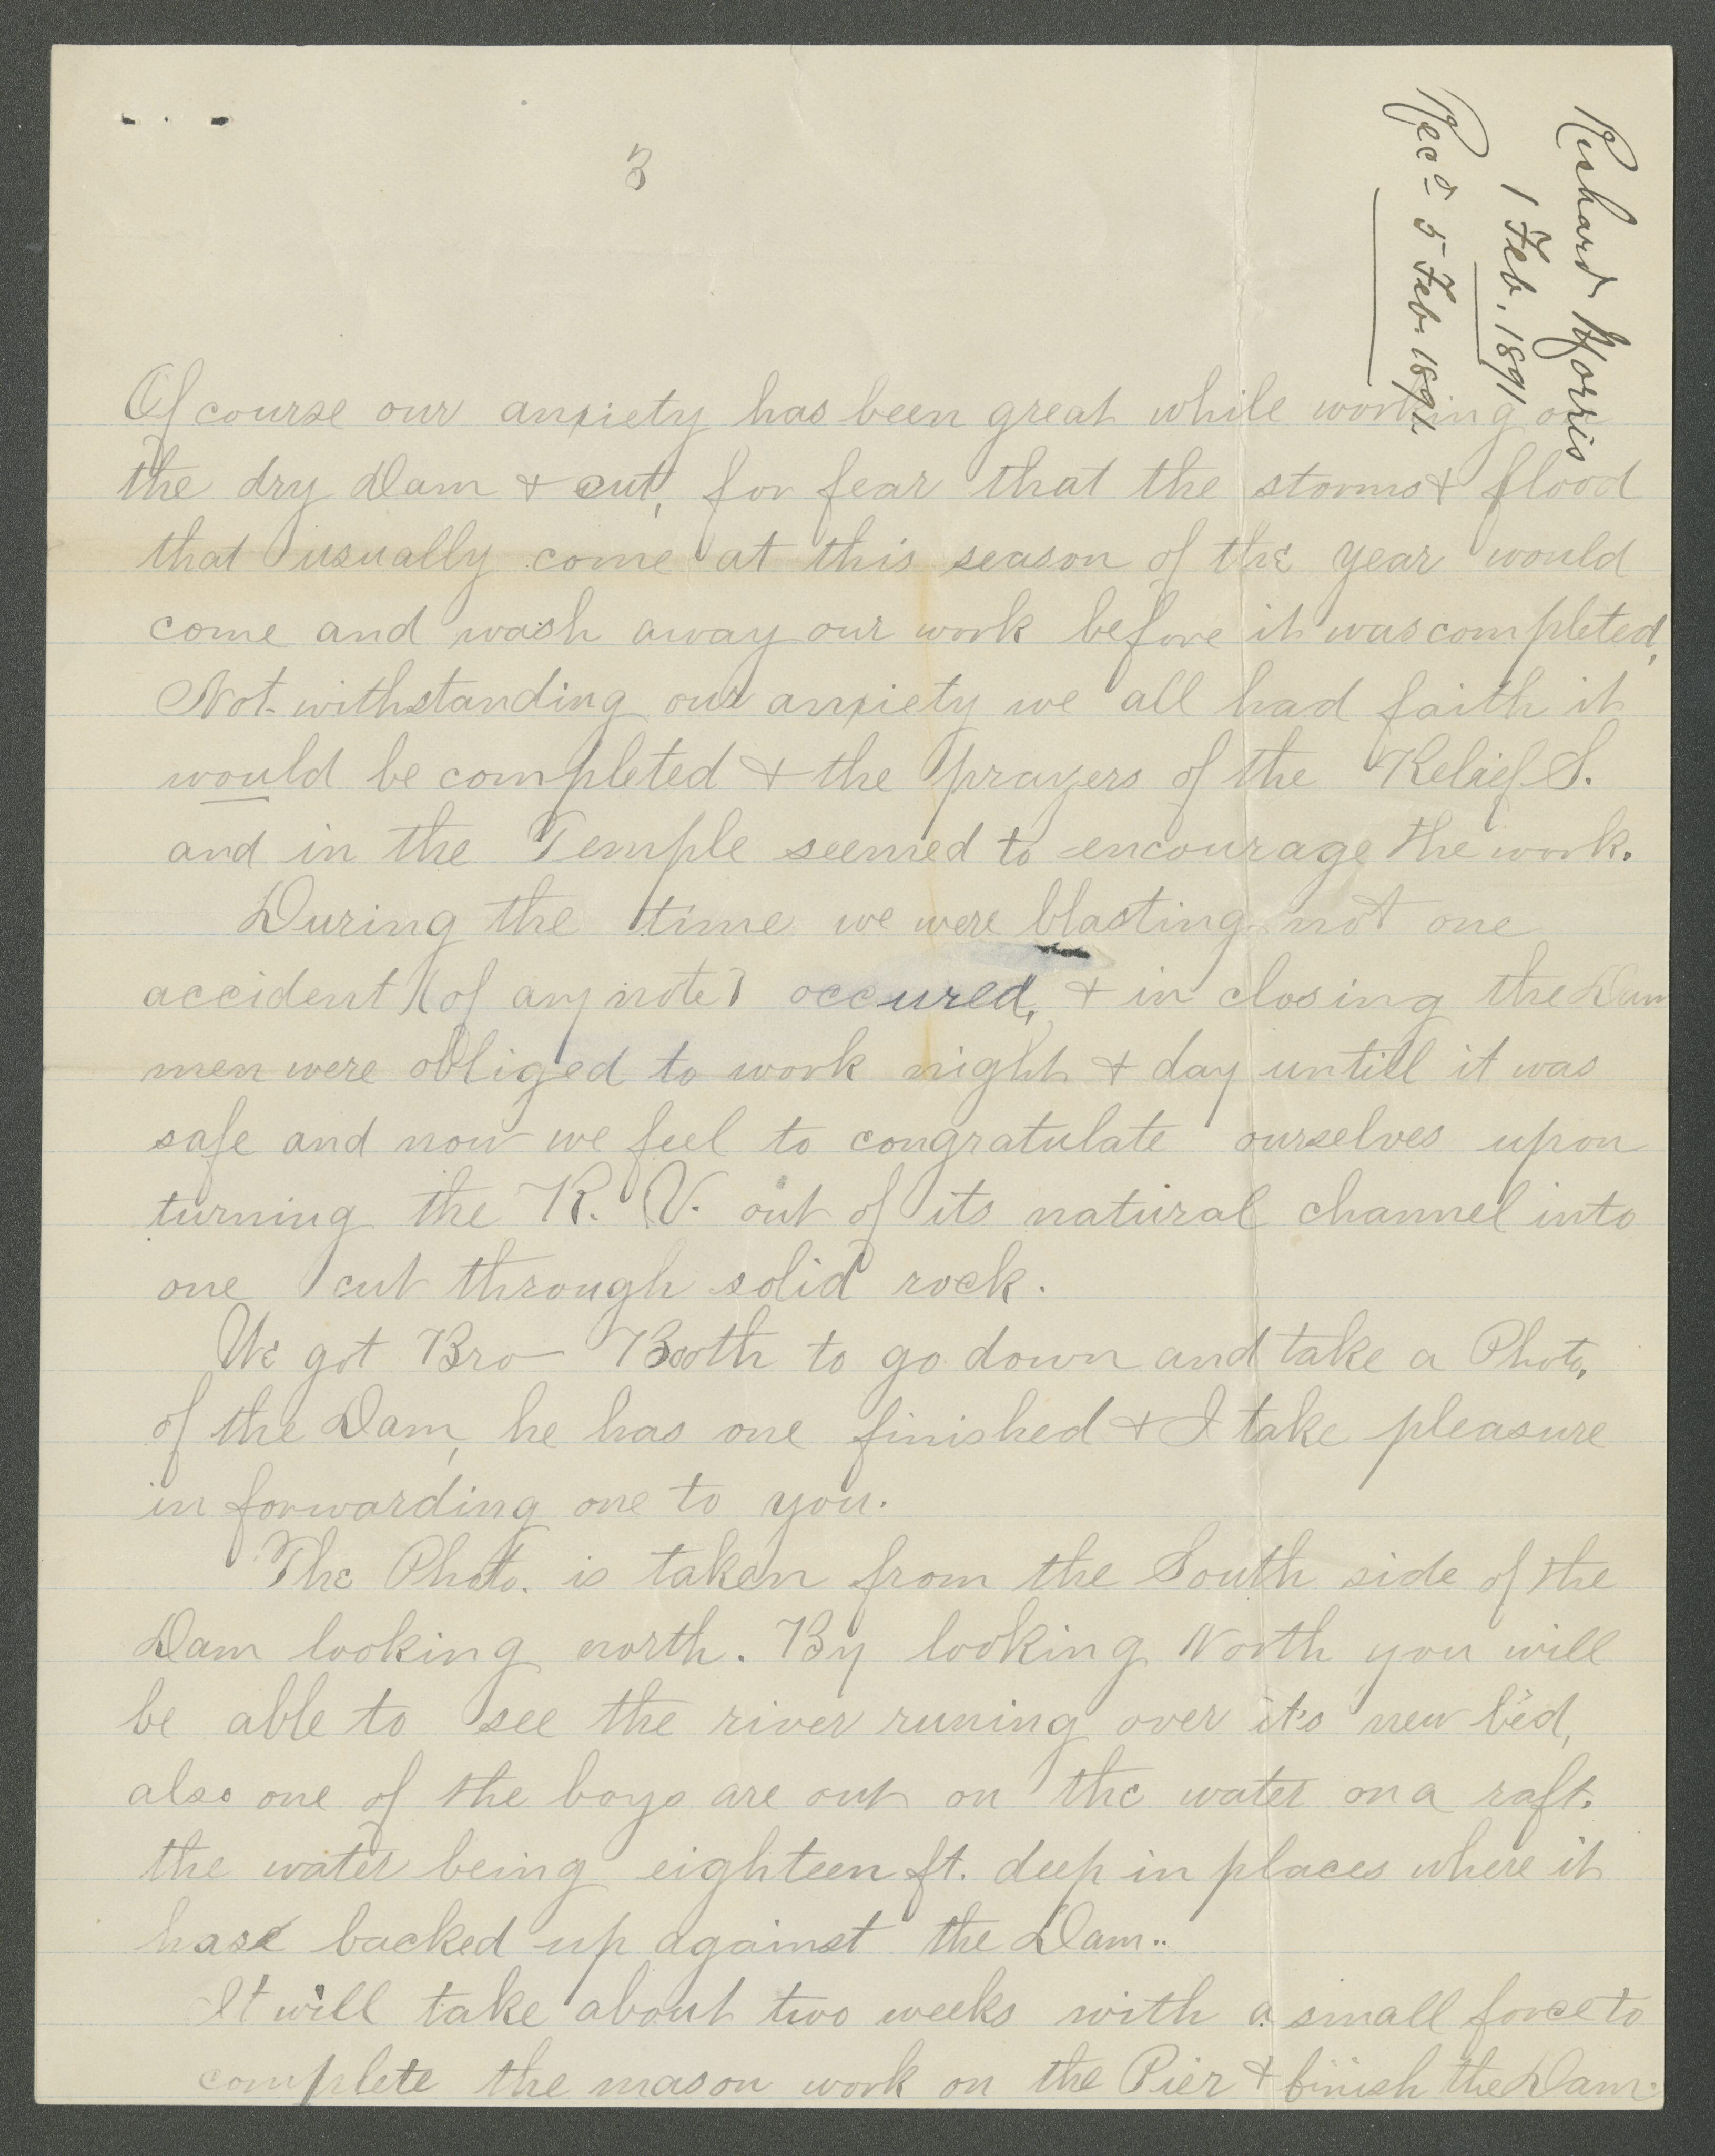 3
Richard Morris
1 Feb. 1891
Rec'd 5 Feb. 1891
Of course our anxiety has been great while working on
the dry Dam & cut, for fear that the storms & flood
that usually come at this season of the year would
come and wash away our work before it was completed,
Not-withstanding our anxiety we all had faith it
would be completed & the prayers of the Relief S.
and in the Temple seemed to encourage the work.
During the time we were blasting not one
accident (of any note) occured, & in closing the Dam
men were obliged to work night & day untill it was
safe and now we feel to congratulate ourselves upon
turning the R. V. out of its natural channel into
one cut through solid rock.
We got Bro Booth to go down and take a Photo,
of the Dam, he has one finished & I take pleasure
in forwarding one to you.
The Photo. is taken from the South side of the
Dam looking north. By looking North you will
be able to see the river runing over it's new bed,
also one of the boys are out on the water on a raft.
the water being eighteen ft. deep in places where it
has backed up against the Dam..
It will take about two weeks with a small force to
complete the mason work on the Pier & finish the Dam.